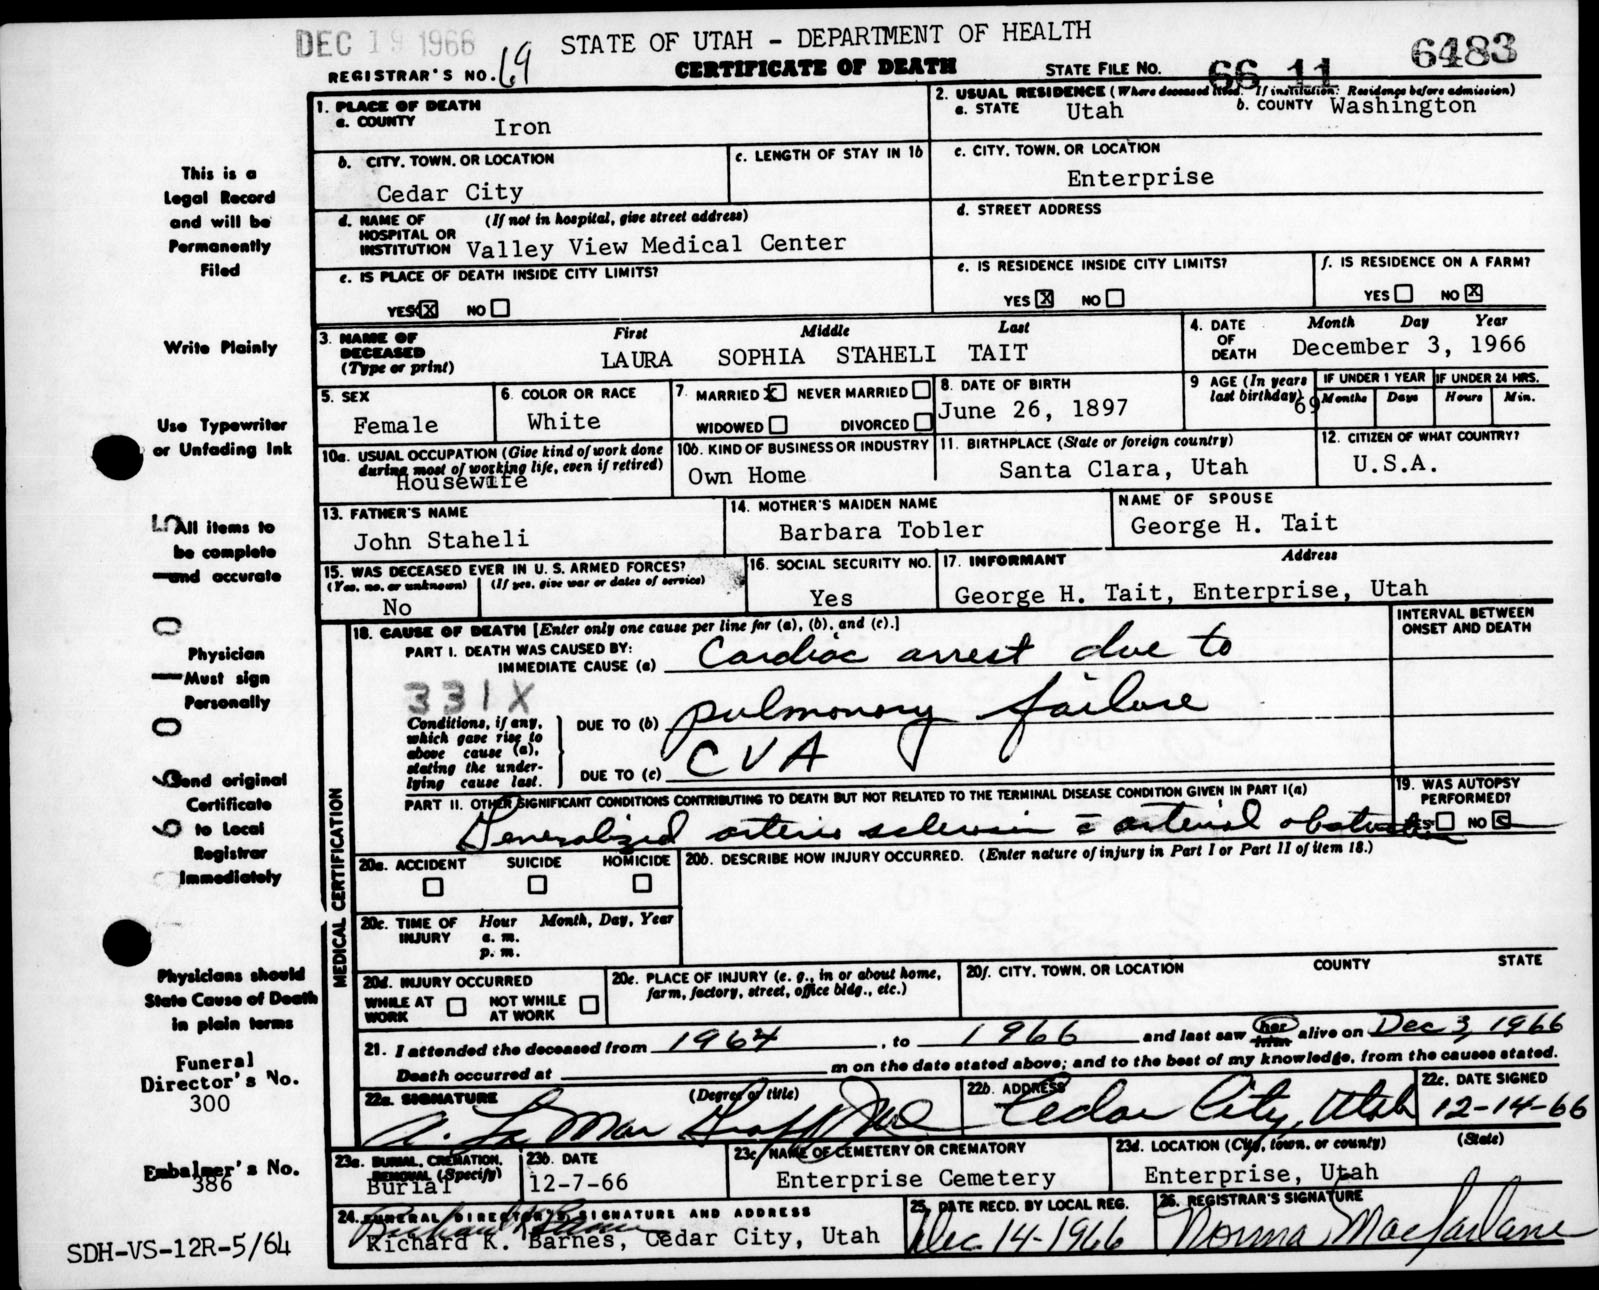 DEC 19 1966
STATE OF UTAH - DEPARTMENT OF HEALTH
6483
REGISTRAR'S NO. 69
CERTIFICATE OF DEATH
STATE FILE NO. 66 11
1. PLACE OF DEATH
a. COUNTY Iron
2. USUAL RESIDENCE (Where deceased lived. If institution: Residence before admission)
a. STATE Utah b. COUNTY Washington
b. CITY, TOWN, OR LOCATION
Cedar City
c. LENGTH OF STAY IN 1b
c. CITY, TOWN, OR LOCATION
Enterprise
d. NAME OF (If not in hospital, give street address)
HOSPITAL OR
INSTITUTION Valley View Medical Center
d. STREET ADDRESS
e. IS PLACE OF DEATH INSIDE CITY LIMITS?
YES X NO
e. IS RESIDENCE INSIDE CITY LIMITS?
YES X NO
f. IS RESIDENCE ON A FARM?
YES NO X
3. NAME OF
DECEASED
(Type or print)
First Middle Last
LAURA SOPHIA STAHELI TAIT
4. DATE
OF
DEATH
Month Day Year
December 3, 1966
5. SEX
Female
6. COLOR OR RACE
White
7. MARRIED X NEVER MARRIED
WIDOWED DIVORCED
8. DATE OF BIRTH
June 26, 1897
9 AGE (In years
last birthday) 69
IF UNDER 1 YEAR
Months Days
IF UNDER 24 HRS.
Hours Min.
10a. USUAL OCCUPATION (Give kind of work done
during most of working life, even if retired)
Housewife
10b. KIND OF BUSINESS OR INDUSTRY
Own Home
11. BIRTHPLACE (State or foreign country)
Santa Clara, Utah
12. CITIZEN OF WHAT COUNTRY?
U.S.A.
13. FATHER'S NAME
John Staheli
14. MOTHER'S MAIDEN NAME
Barbara Tobler
NAME OF SPOUSE
George H. Tait
15. WAS DECEASED EVER IN U. S. ARMED FORCES?
(Yes, no, or unknown) (If yes, give war or dates of service)
No
16. SOCIAL SECURITY NO.
Yes
17. INFORMANT Address
George H. Tait, Enterprise, Utah
MEDICAL CERTIFICATION
18. CAUSE OF DEATH [Enter only one cause per line for (a), (b), and (c).]
INTERVAL BETWEEN
ONSET AND DEATH
PART I. DEATH WAS CAUSED BY:
IMMEDIATE CAUSE (a) Cardiac arrest due to
331X
Conditions, if any,
which gave rise to
above cause (a),
stating the under-
lying cause last.
DUE TO (b) pulmonary failure
DUE TO (c) CVA
PART II. OTHER SIGNIFICANT CONDITIONS CONTRIBUTING TO DEATH BUT NOT RELATED TO THE TERMINAL DISEASE CONDITION GIVEN IN PART I(a)
Generalized arterio sclerosis c arterial obstruction
19. WAS AUTOPSY
PERFORMED?
YES NO
20a. ACCIDENT SUICIDE HOMICIDE
20b. DESCRIBE HOW INJURY OCCURRED. (Enter nature of injury in Part I or Part II of item 18.)
20c. TIME OF INJURY Hour Month, Day, Year
a. m.
p. m.
20d. INJURY OCCURRED
WHILE AT WORK NOT WHILE AT WORK
20e. PLACE OF INJURY (e. g., in or about home,
farm, factory, street, office bldg., etc.)
20f. CITY, TOWN, OR LOCATION COUNTY STATE
21. I attended the deceased from 1964, to 1966 and last saw her him alive on Dec 3, 1966
Death occurred at m on the date stated above; and to the best of my knowledge, from the causes stated.
22a. SIGNATURE (Degree or title)
A. La Mar Graff MD
22b. ADDRESS
Cedar City, Utah
22c. DATE SIGNED
12-14-66
23a. BURIAL, CREMATION,
REMOVAL (Specify)
Burial
23b. DATE
12-7-66
23c. NAME OF CEMETERY OR CREMATORY
Enterprise Cemetery
23d. LOCATION (City, town, or county) (State)
Enterprise, Utah
24. FUNERAL DIRECTOR'S SIGNATURE AND ADDRESS
Richard K. Barnes, Cedar City, Utah
25. DATE RECD. BY LOCAL REG.
Dec. 14-1966
26. REGISTRAR'S SIGNATURE
Norma Macfarlane
This is a
Legal Record
and will be
Permanently
Filed
Write Plainly
Use Typewriter
or Unfading Ink
All items to
be complete
and accurate
Physician
Must sign
Personally
Send original
Certificate
to Local
Registrar
Immediately
Physicians should
State Cause of Death
in plain terms
Funeral
Director's No.
300
Embalmer's No.
386
SDH-VS-12R-5/64